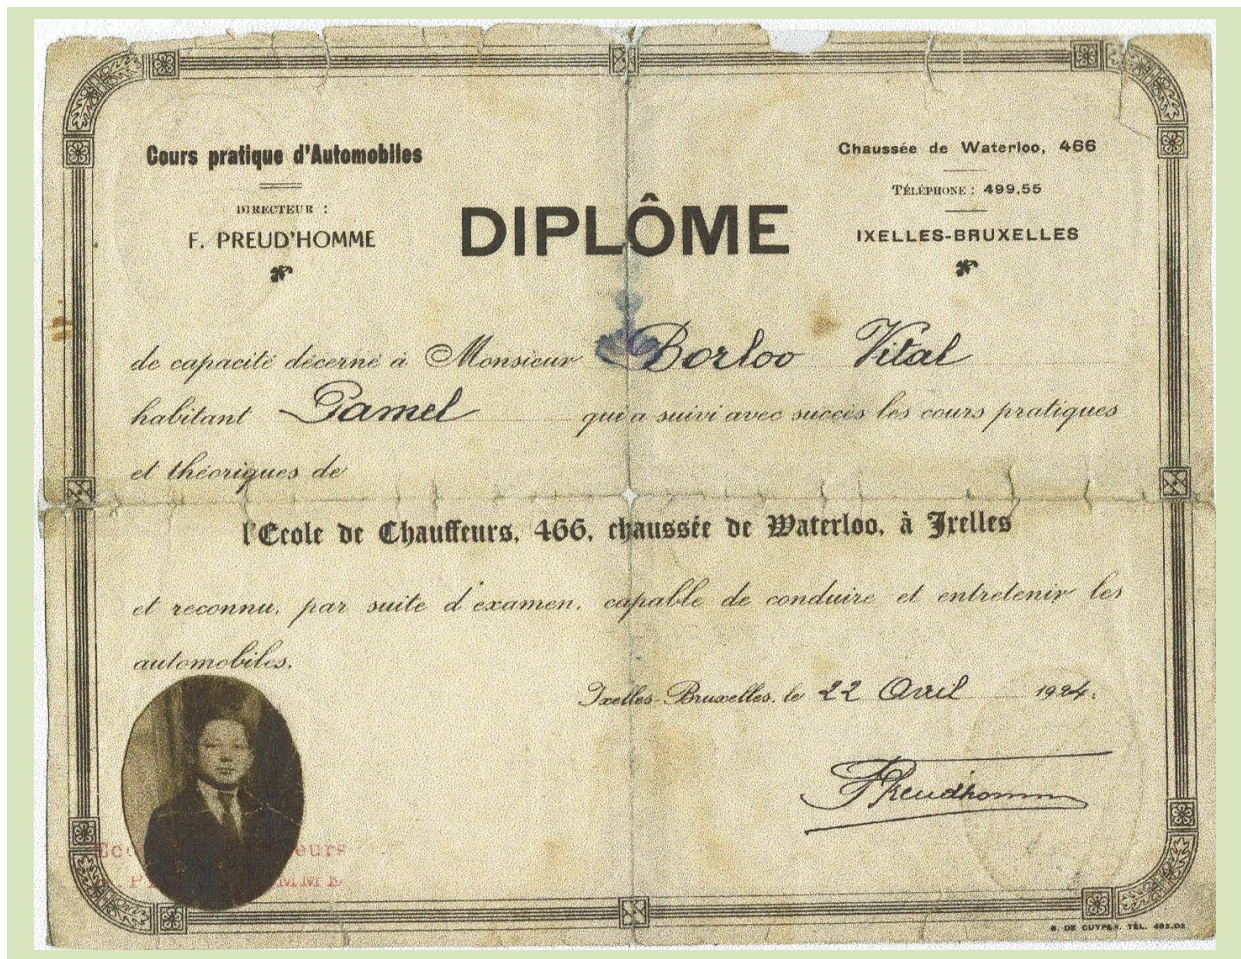 Cours pratique d'Automobiles
DIRECTEUR :
F. PREUD'HOMME
Chaussée de Waterloo, 466
TÉLÉPHONE : 499,55
IXELLES-BRUXELLES
DIPLÔME
de capacité décerné à Monsieur Borloo Vital
habitant Pamel qui a suivi avec succès les cours pratiques
et théoriques de
l'Ecole de Chauffeurs, 466, chaussée de Waterloo, à Ixelles
et reconnu, par suite d'examen, capable de conduire et entretenir les
automobiles.
Ixelles-Bruxelles, le 22 Avril 1924.
FPreudhomm
Eco eurs
P MME
E. DE CUYPER. TÉL. 482.02